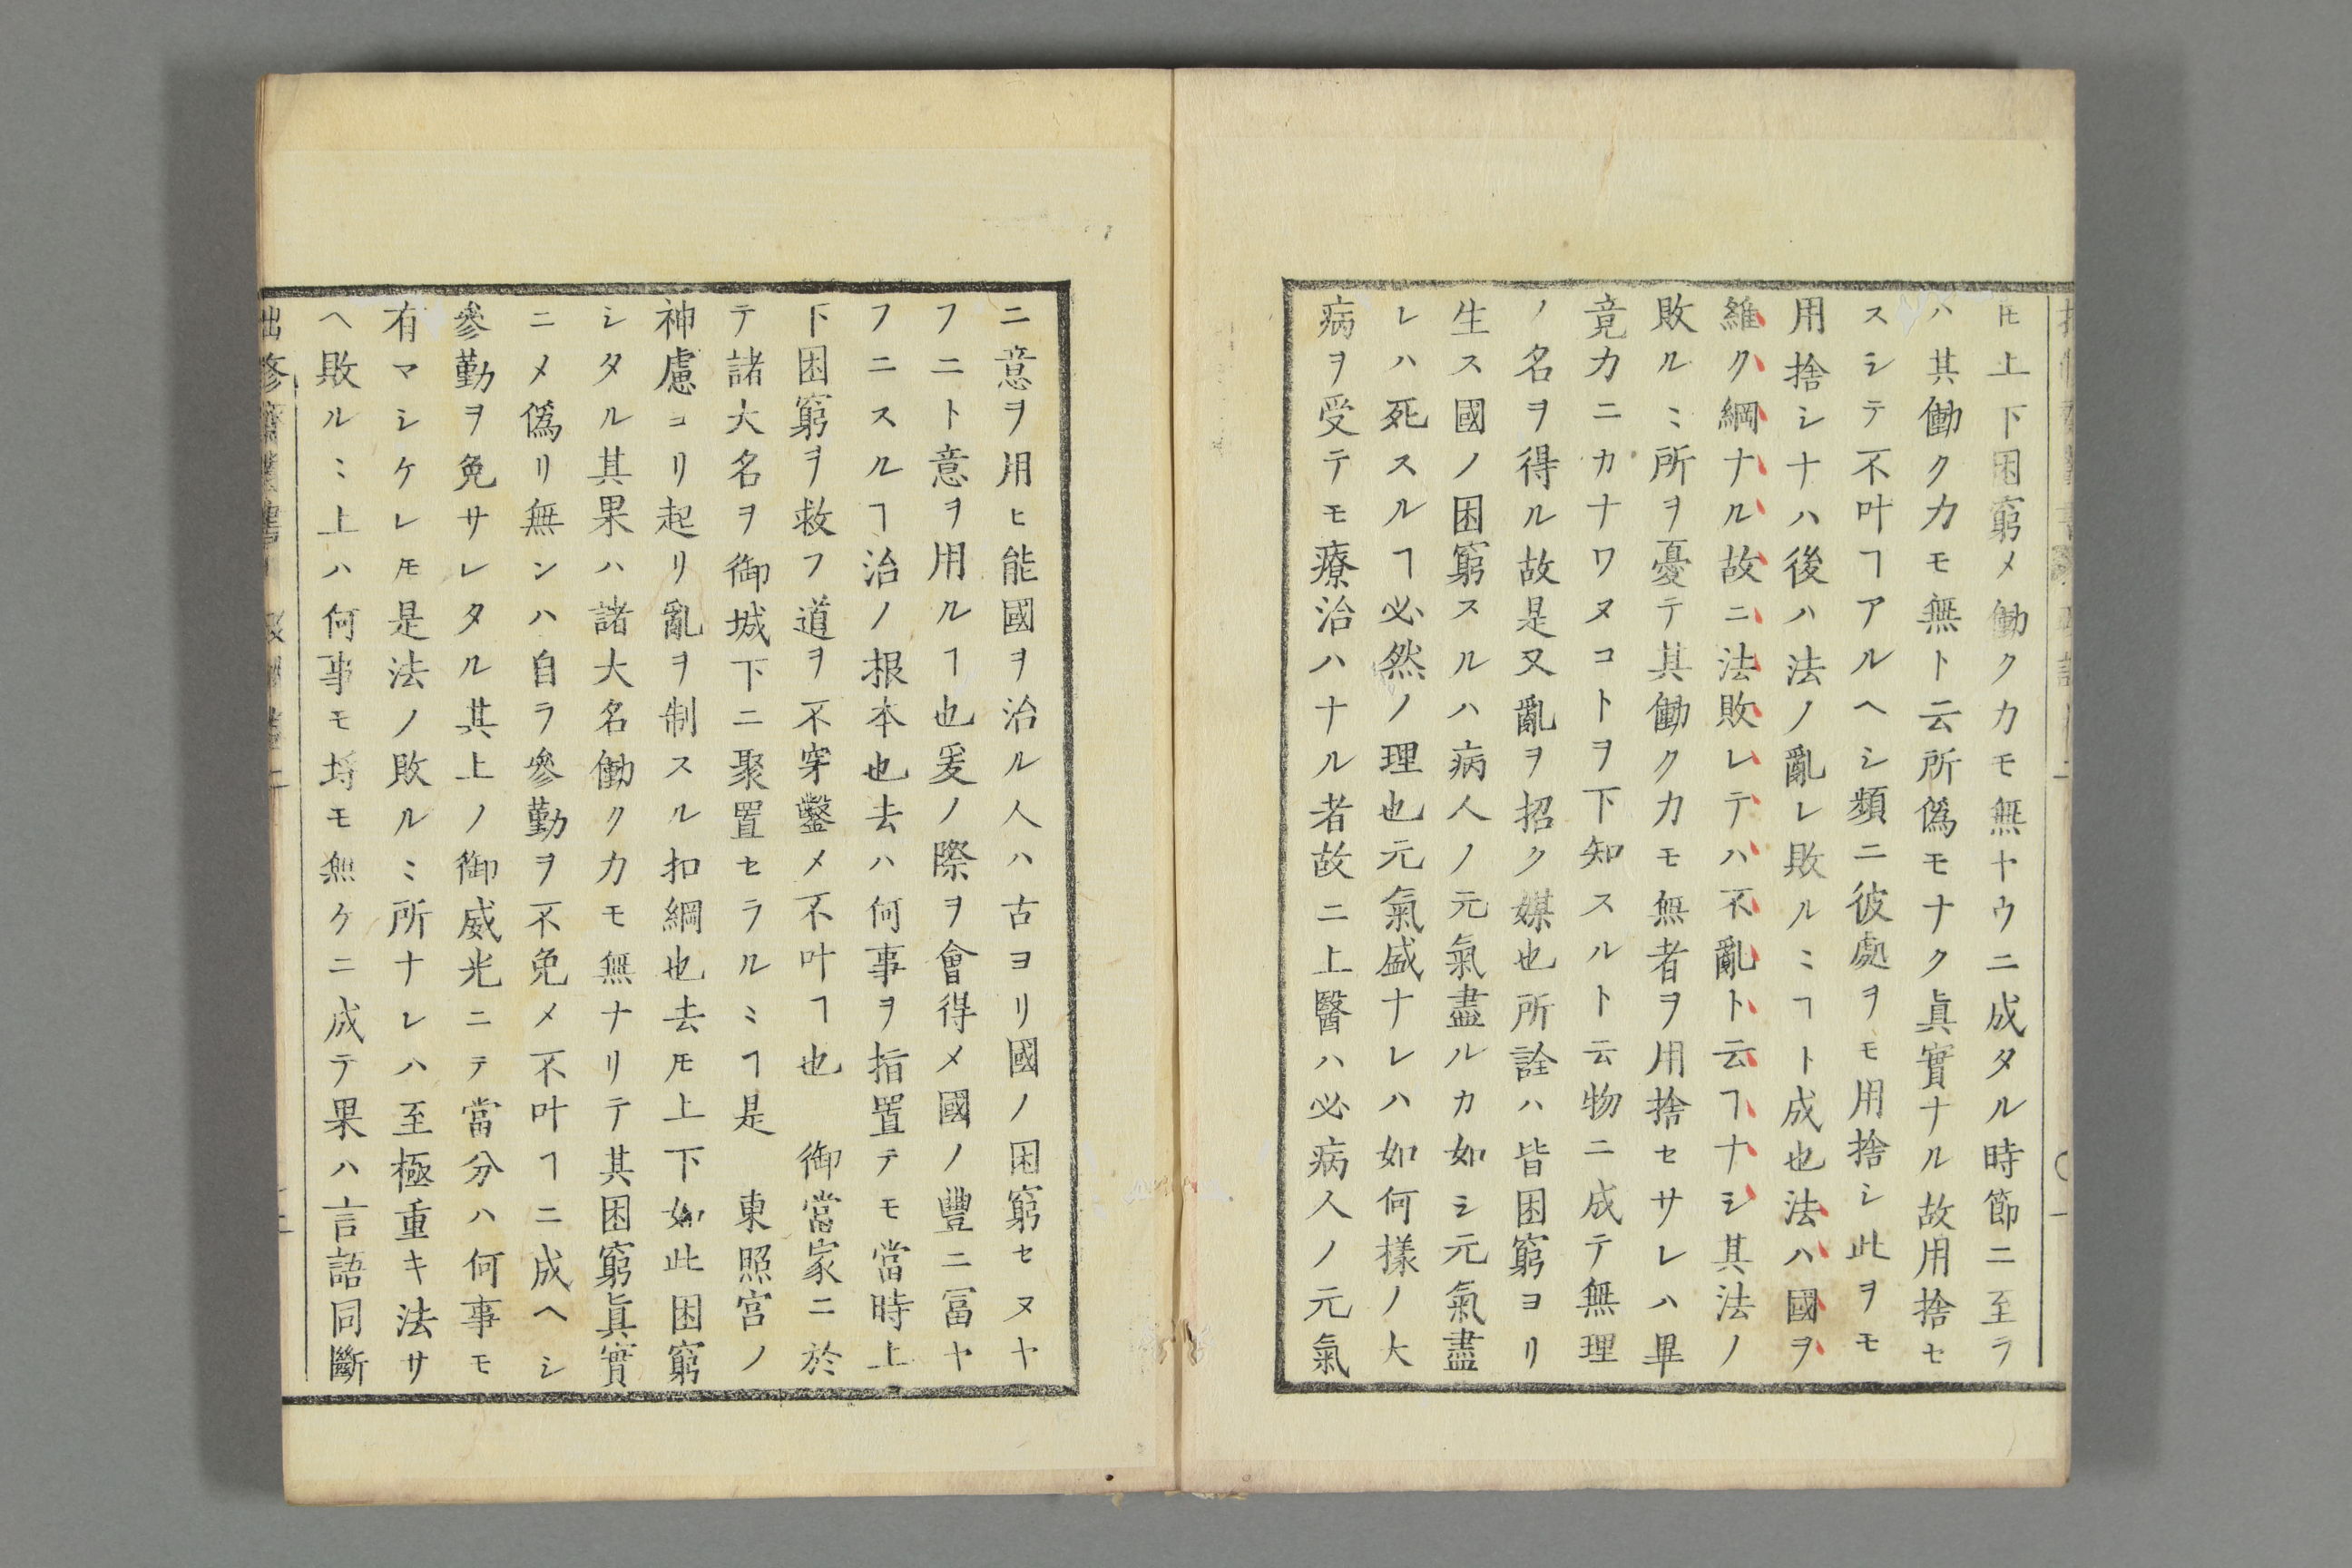 𪜈上下困窮〆働クカモ無ヤウニ成タル時節ニ至ラ
ハ其働ク力モ無ト云所偽モナク眞實ナル故用捨セ
スシテ不叶ヿアルヘシ頻ニ彼處ヲモ用捨シ此ヲモ
用捨シナハ後ハ法ノ亂レ敗ルミヿト成也法ハ國ヲ
維ク綱ナル故ニ法敗レテハ不亂ト云ヿナシ其法ノ
敗ルミ所ヲ憂テ其働ク力モ無者ヲ用捨セサレハ畢
竟カニカナワヌコトヲ下知スルト云物ニ成テ無理
ノ名ヲ得ル故是又亂ヲ招ク媒也所詮ハ皆困窮ヨリ
生ス國ノ困窮スルハ病人ノ元氣盡ルカ如シ元氣盡
レハ死スルヿ必然ノ理也元氣盛ナレハ如何樣ノ大
病ヲ受テモ療治ハナル者故ニ上醫ハ必病人ノ元氣
ニ意ヲ用ヒ能國ヲ治ル人ハ古ヨリ國ノ困窮セヌヤ
フニト意ヲ用ルヿ也爰ノ際ヲ會得〆國ノ豐ニ冨ヤ
フニスルヿ治ノ根本也去ハ何事ヲ指置テモ當時上
下困窮ヲ救フ道ヲ不穿鑿〆不叶ヿ也　御當家ニ於
テ諸大名ヲ御城下ニ聚置セラルミヿ是　東照宮ノ
神慮ヨリ起リ亂ヲ制スル扣綱也去𪜈上下如此困窮
シタル其果ハ諸大名働ク力モ無ナリテ其困窮眞實
ニ〆偽リ無ンハ自ラ參勤ヲ不免〆不叶ヿニ成ヘシ
參勤ヲ免サレタル其上ノ御威光ニテ當分ハ何事モ
有マシケレ𪜈是法ノ敗ルミ所ナレハ至極重キ法サ
ヘ敗ルミ上ハ何事モ埒モ無ケニ成テ果ハ言語同斷